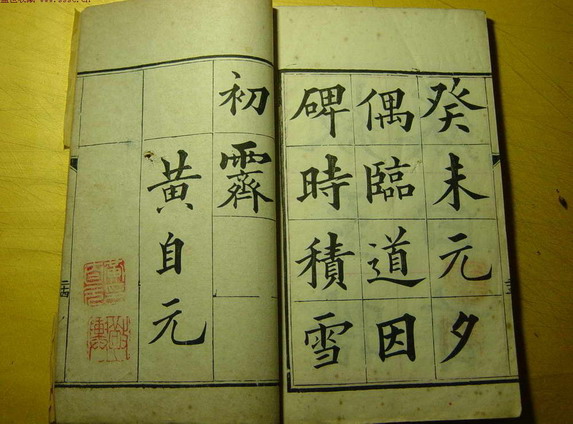 癸未元夕
偶臨道因
碑時積雪
初霽
黃自元